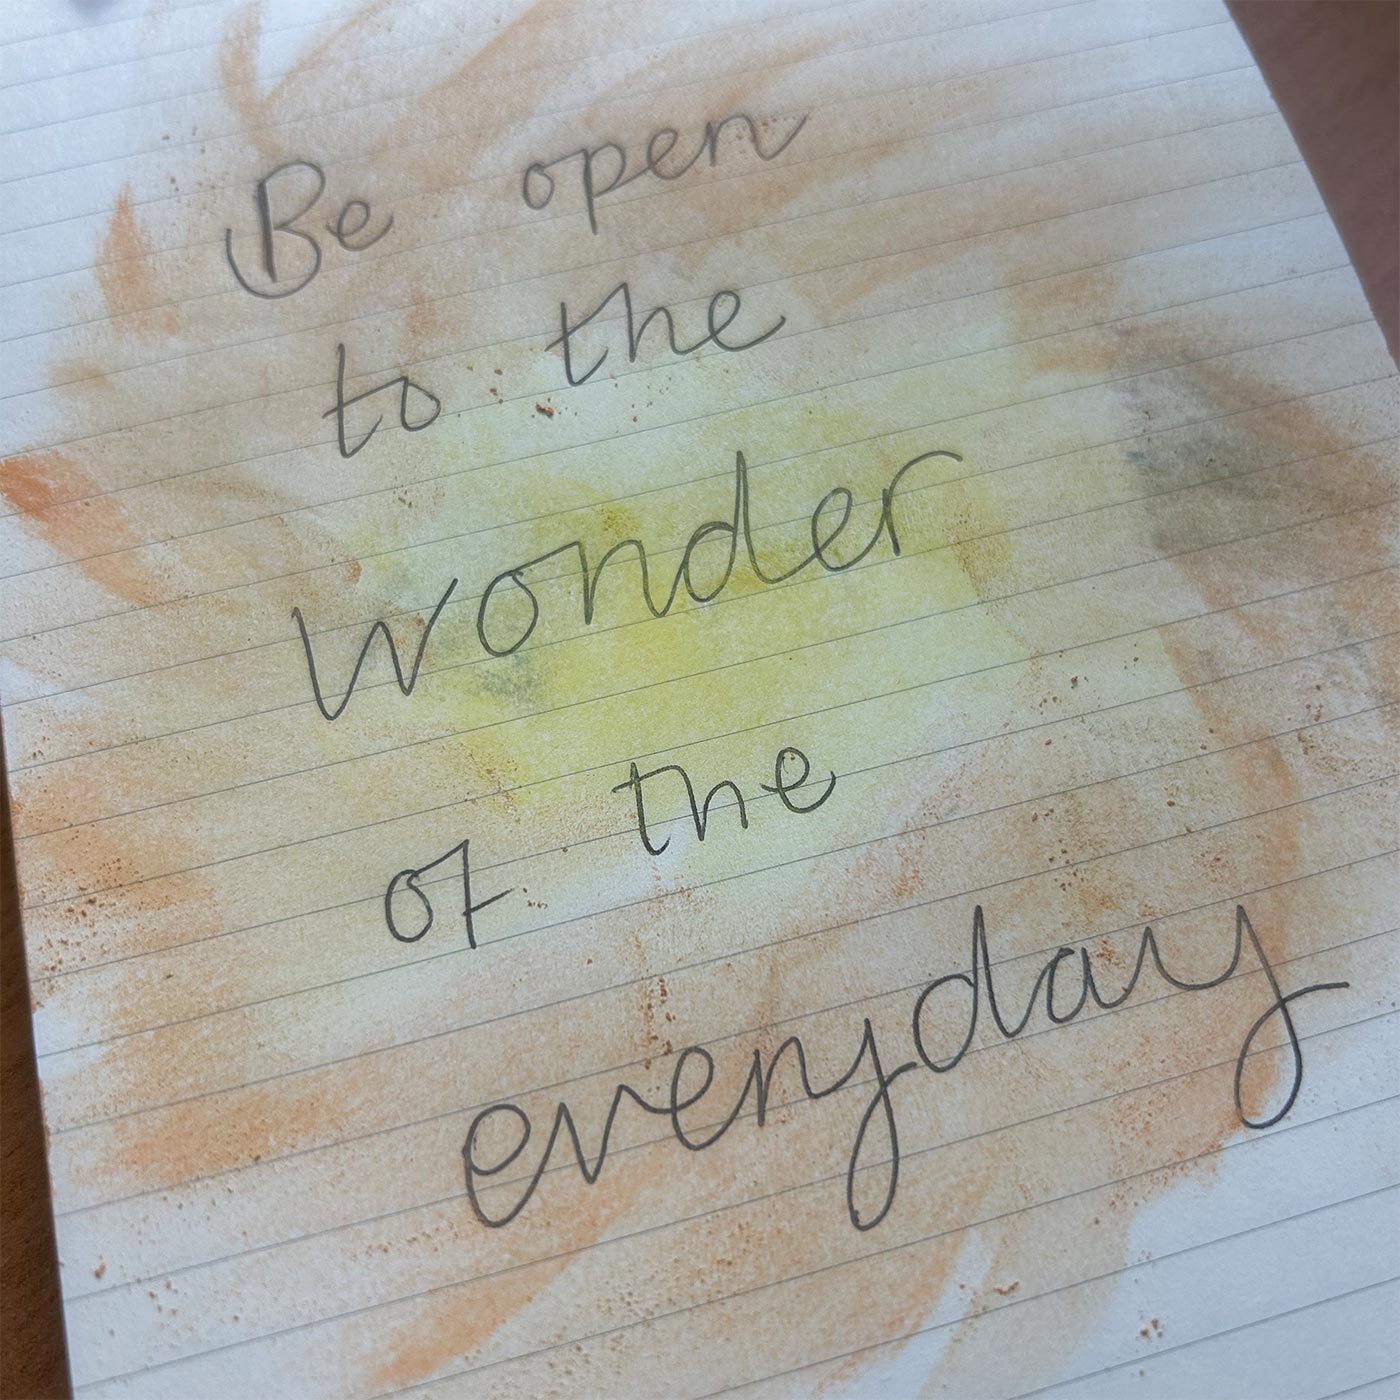 Be open
to the
wonder
of the
everyday